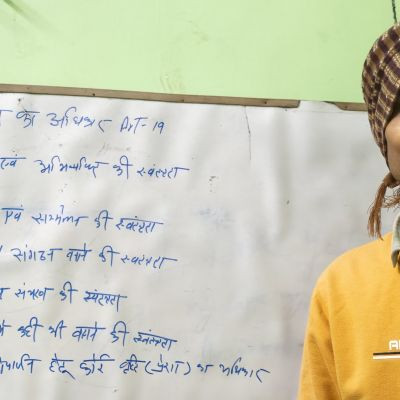 का अधिकार Art-19
एवं अभिव्यक्ति की स्वंत्रता
एवं सम्मेलन की स्वंत्रता
संगठन बनाने की स्वंत्रता
संचरण की स्वंत्रता
कही भी बसने की स्वंत्रता
हेतू कोई वृति (पेशा) का अधिकार